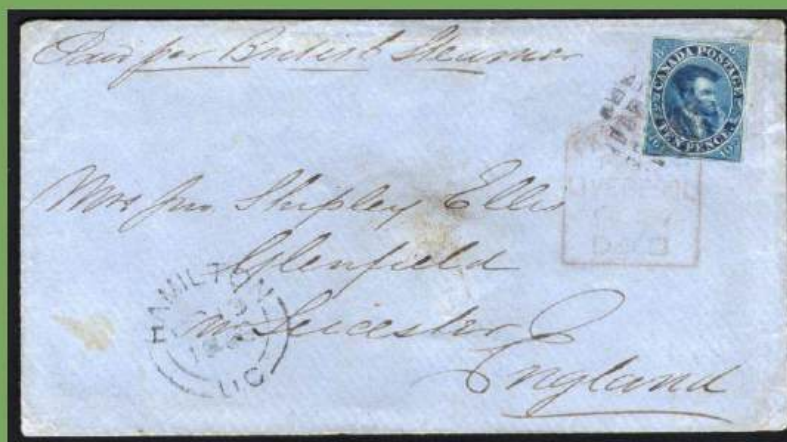 Paid per British Steamer
CANADA POSTAGE
TEN PENCE
LIVERPOOL
PAID
Mrs Jno. Shipley Ellis
Glenfield
nr Leicester
England
HAMILTON
U.C